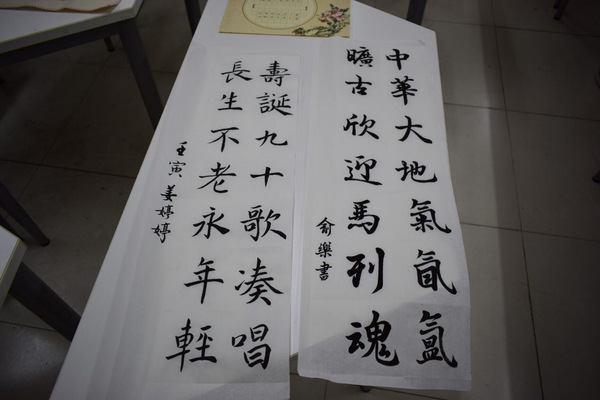 中華大地氣氤氳
曠古欣迎馬列魂
俞樂書
壽誕九十歌凑唱
長生不老永年輕
壬寅 姜婷婷